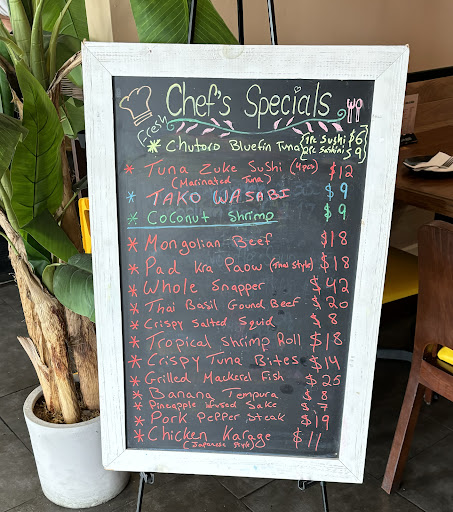 Chef's Specials
Fresh
* Chutoro Bluefin Tuna 1pc Sushi $6
2pc Sashimi $9
* Tuna Zuke Sushi (4pcs) $12
(Marinated Tuna)
* TAKO WASABI $9
* Coconut Shrimp $9
* Mongolian Beef $18
* Pad Kra Paow (Thai Style) $18
* Whole Snapper $42
* Thai Basil Gound Beef $20
* Crispy Salted Squid $8
* Tropical Shrimp Roll $18
* Crispy Tuna Bites $14
* Grilled Mackerel Fish $25
* Banana Tempura $8
* Pineapple infused Sake $7
* Pork Pepper Steak $19
* Chicken Karage $11
(Japanese Style)